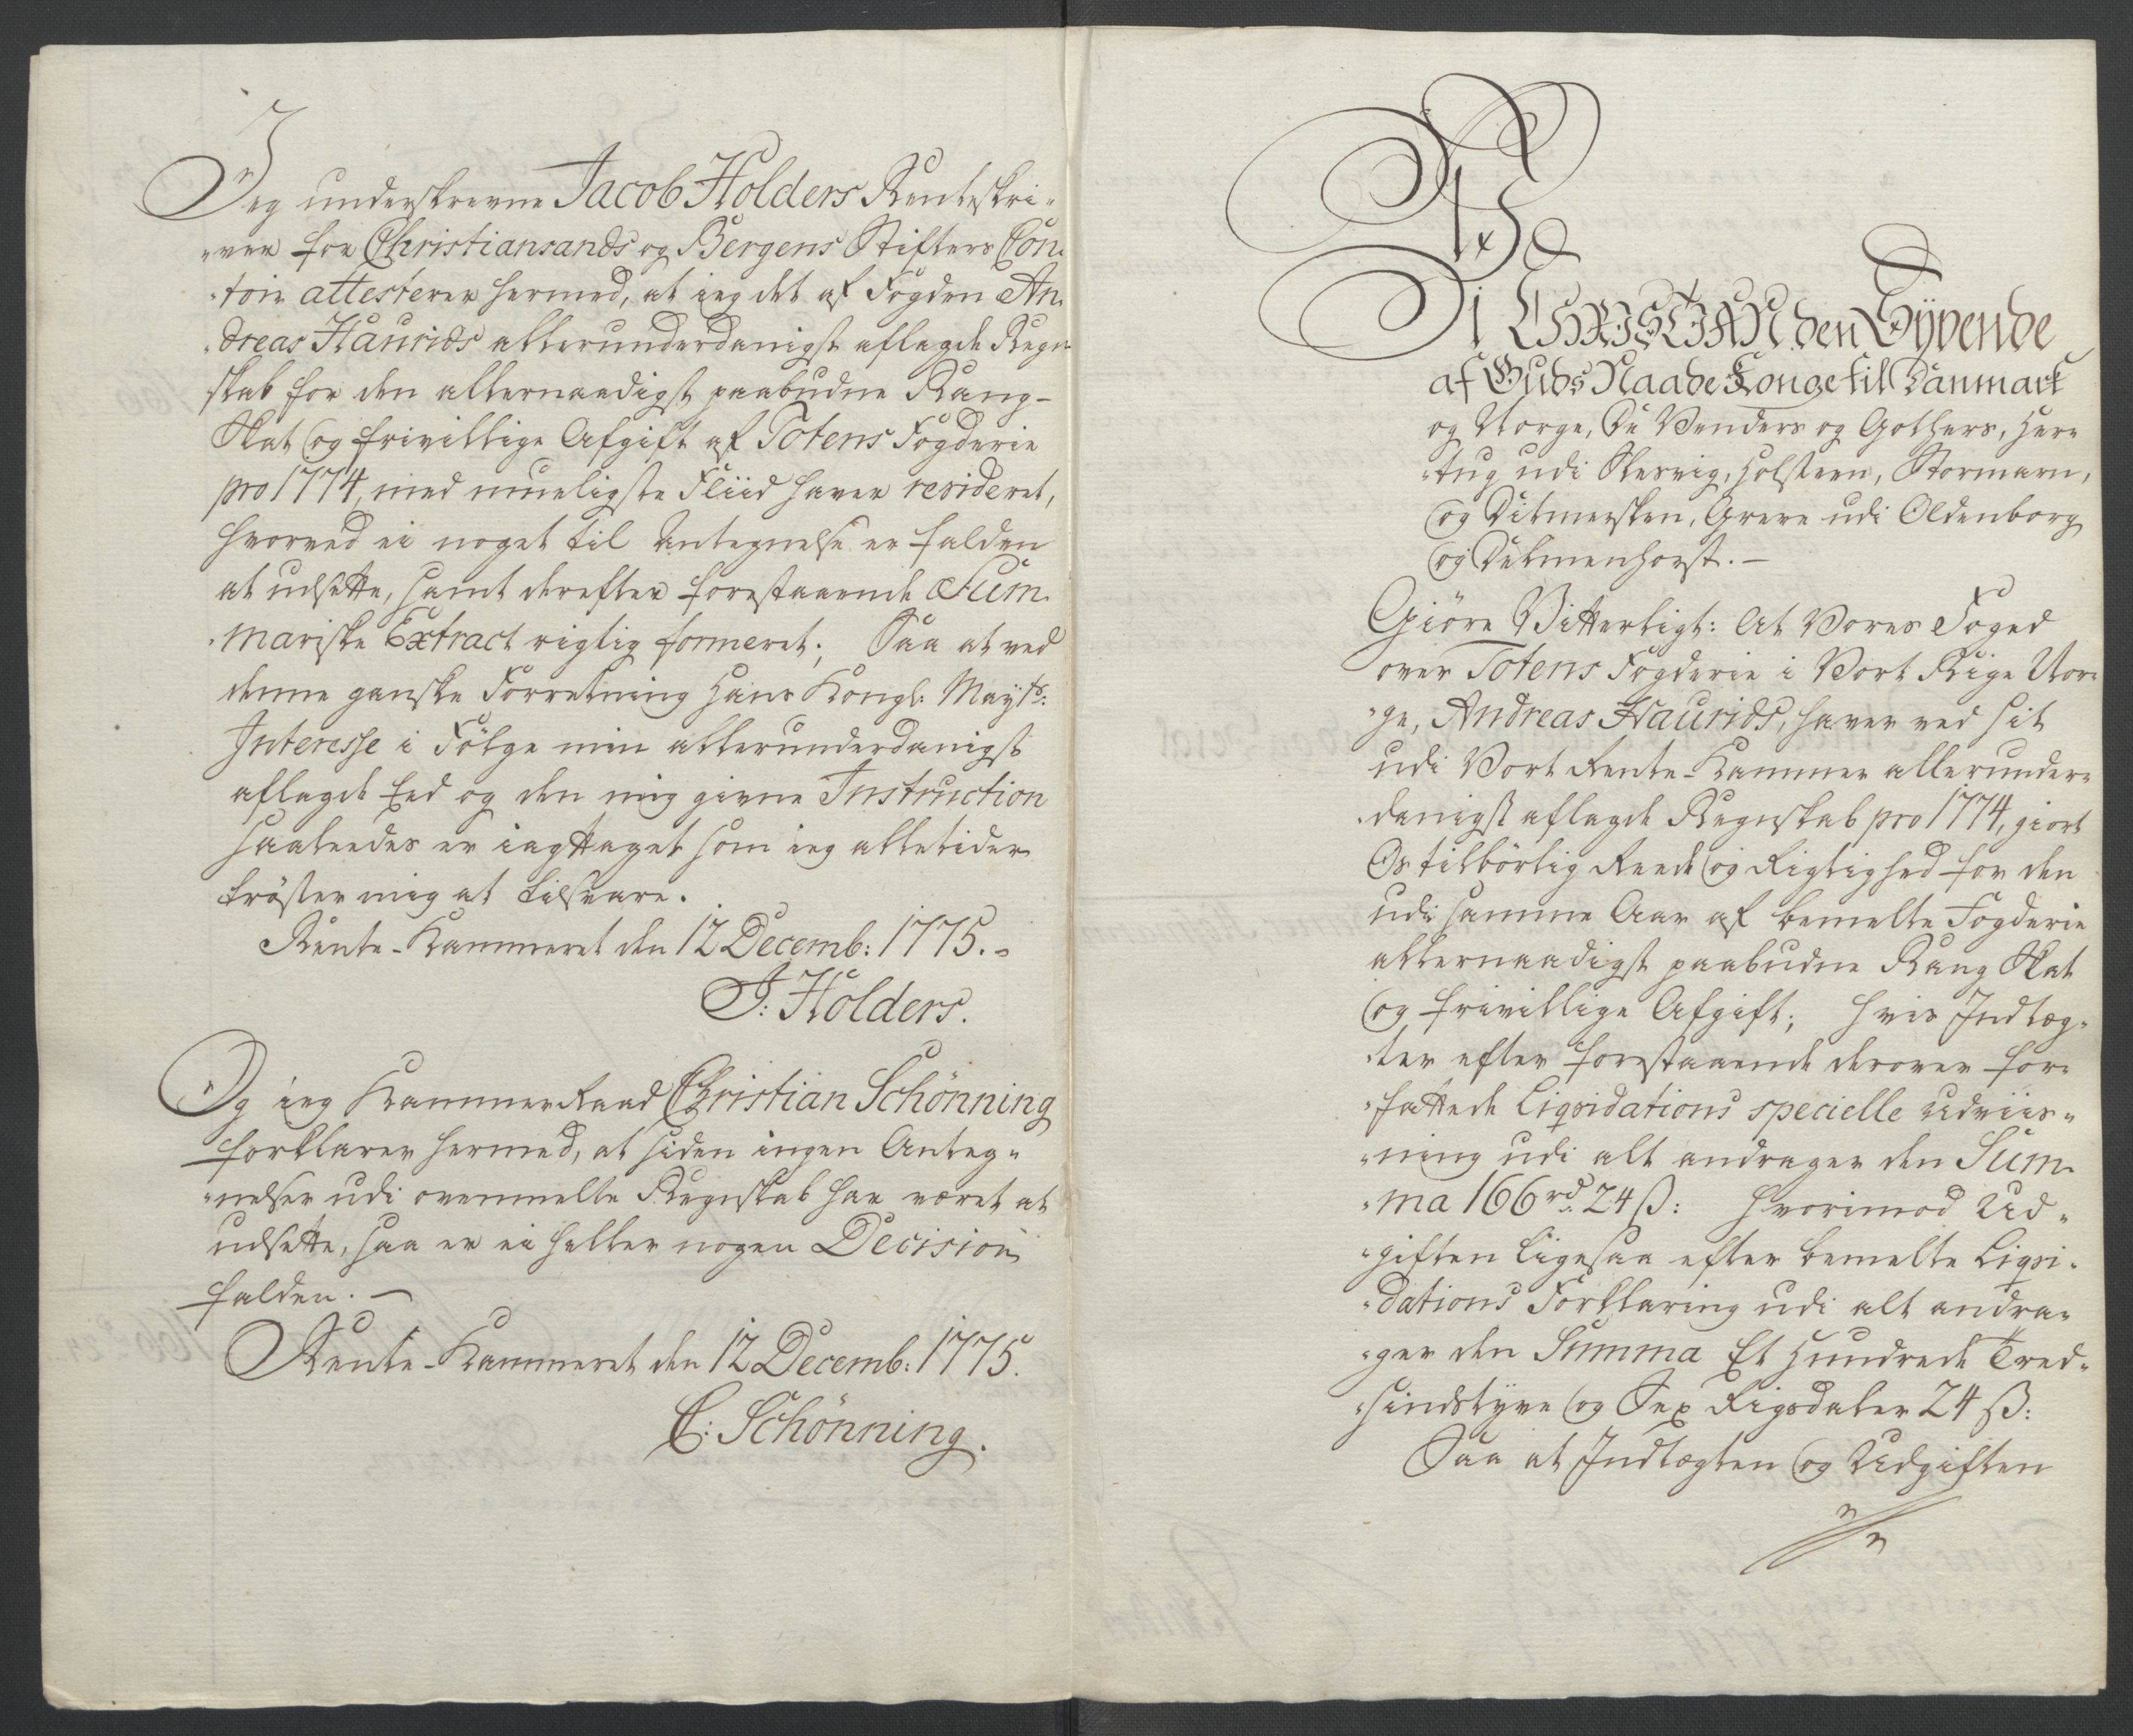 Jeg underskrevne Jacob Holders Renteskri-
-ver for Christiansands og Bergens Stifters Con-
-toir attesterer hermed, at ieg det af Fogden An-
-dreas Haurids allerunderdanigst aflagde Regn-
skab for den allernaadigst paabudne Rang-
Skat og frivillige Afgift af Totens Fogderie
pro 1774, med mueligste Fliid haver revideret,
hvorved ei noget til Antegnelse er falden
at udsætte, samt derefter forestaaende Sum-
-mariske Extract rigtig formeret; Saa at ved
denne ganske Forretning Hans Kongl: Mayts:
Interesse i Fölge min allerunderdanigst
aflagde Eed og den mig givne Instruction
saaledes er iagttaget som ieg alletider
tröster mig at tilsvare.
Rente-Kammeret den 12 Decemb: 1775.
J: Holders.
Og ieg Kammerraad Christian Schönning
forklarer hermed, at siden ingen Anteg-
-nelser udi ovenmelte Regnskab har været at
udsætte, saa er ei heller nogen Decision
falden. —
Rente-Kammeret den 12 Decemb: 1775.
C: Schönning.
Vi CHRISTIAN den Syvende
af Guds Naade Konge til Danmark
og Norge, De Venders og Gothers, Her-
-tug udi Slesvig, Holsteen, Stormarn,
og Ditmersken, Greve udi Oldenborg
og Delmenhorst. —
Giöre Vitterligt: At Vores Foged
over Totens Fogderie i Vort Rige Nor-
-ge, Andreas Haurids, haver ved sit
udi Vort Rente-Kammer allerunder-
-danigst aflagde Regnskab pro 1774, giort
Os tilbörlig Reede og Rigtighed for den
udi samme Aar af bemelte Fogderie
allernaadigst paabudne Rang Skat
og frivillige Afgift; hvis Indtæg-
-ter efter forestaaende derover for-
-fattede Liqvidations specielle Udviis-
-ning udi alt andrager den Sum-
-ma 166 rd: 24 ß: Hvorimod Ud-
-giften ligesaa efter bemelte Liqvi-
-dations Forklaring udi alt andra-
-ger den Summa Et Hundrede Tred-
-sindstyve og Sex Rigsdaler 24 ß:
Saa at Indtægten og Udgiften